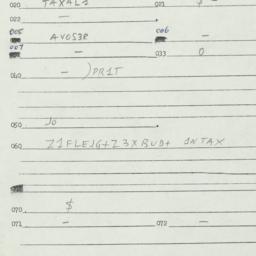 020 TAXAL1 021 $ -
022 -
005 AVOS3R 006 -
007 - 033 0
040 - )PRIT
050 Jo
060 Z1FLEJG+Z3XBUD+ INTAX
070 $
071 - 072 -